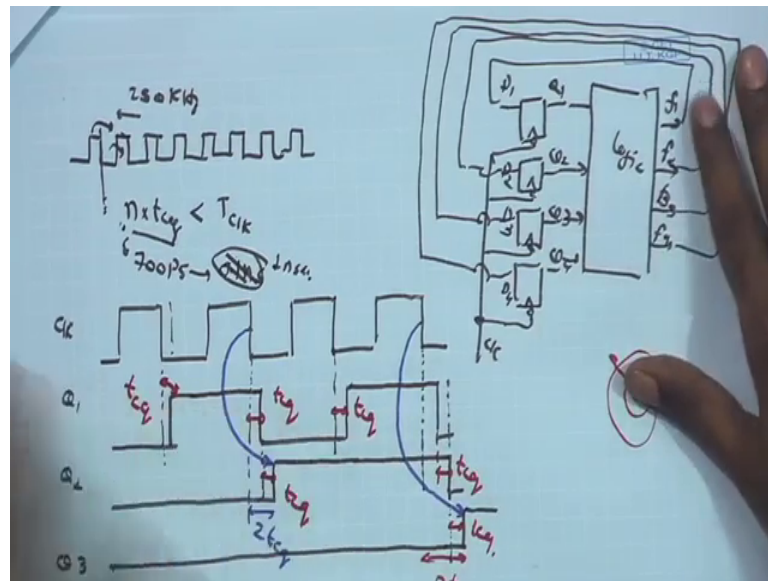 250 KHz
n x tcq < Tclk
700 PS → 1nsec.
Clk
Q1
tcq
tcq
tcq
Q2
tcq
tcq
2tcq
Q3
tcq
D1 Q1
D2 Q2
D3 Q3
D4 Q4
logic
f1
f2
f3
f4
I.I.T. KGP